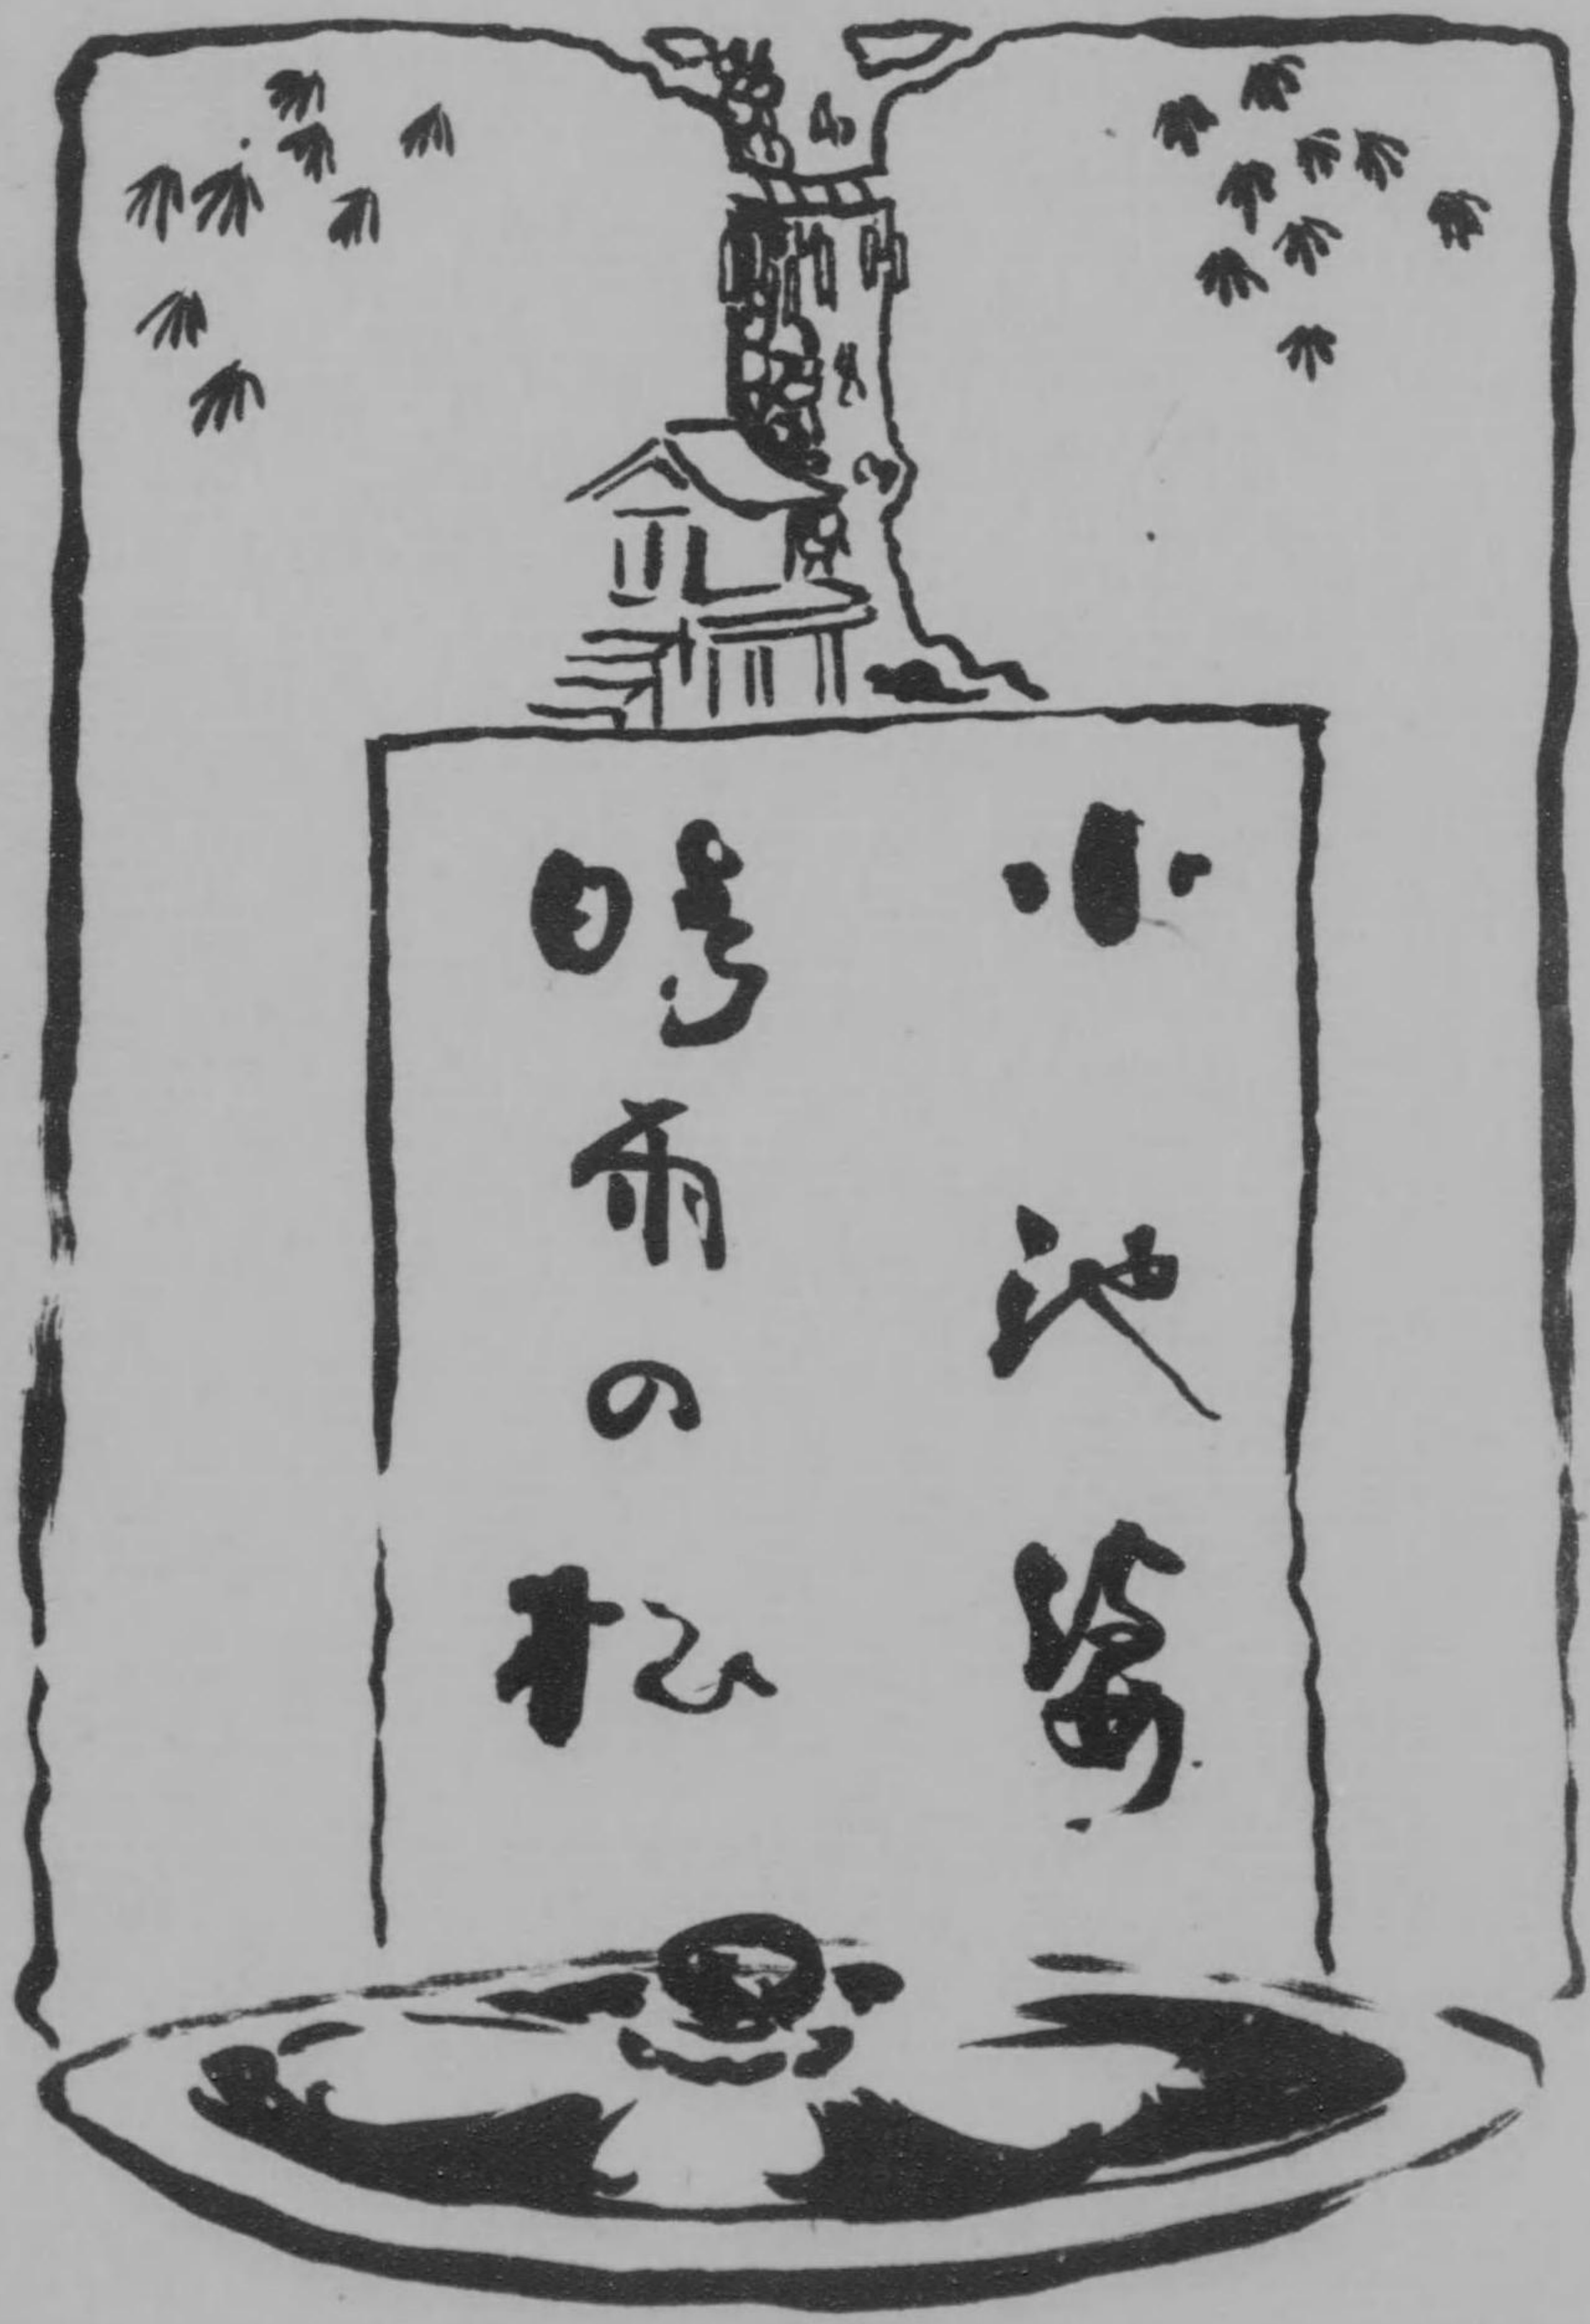 小池婆
時雨の松